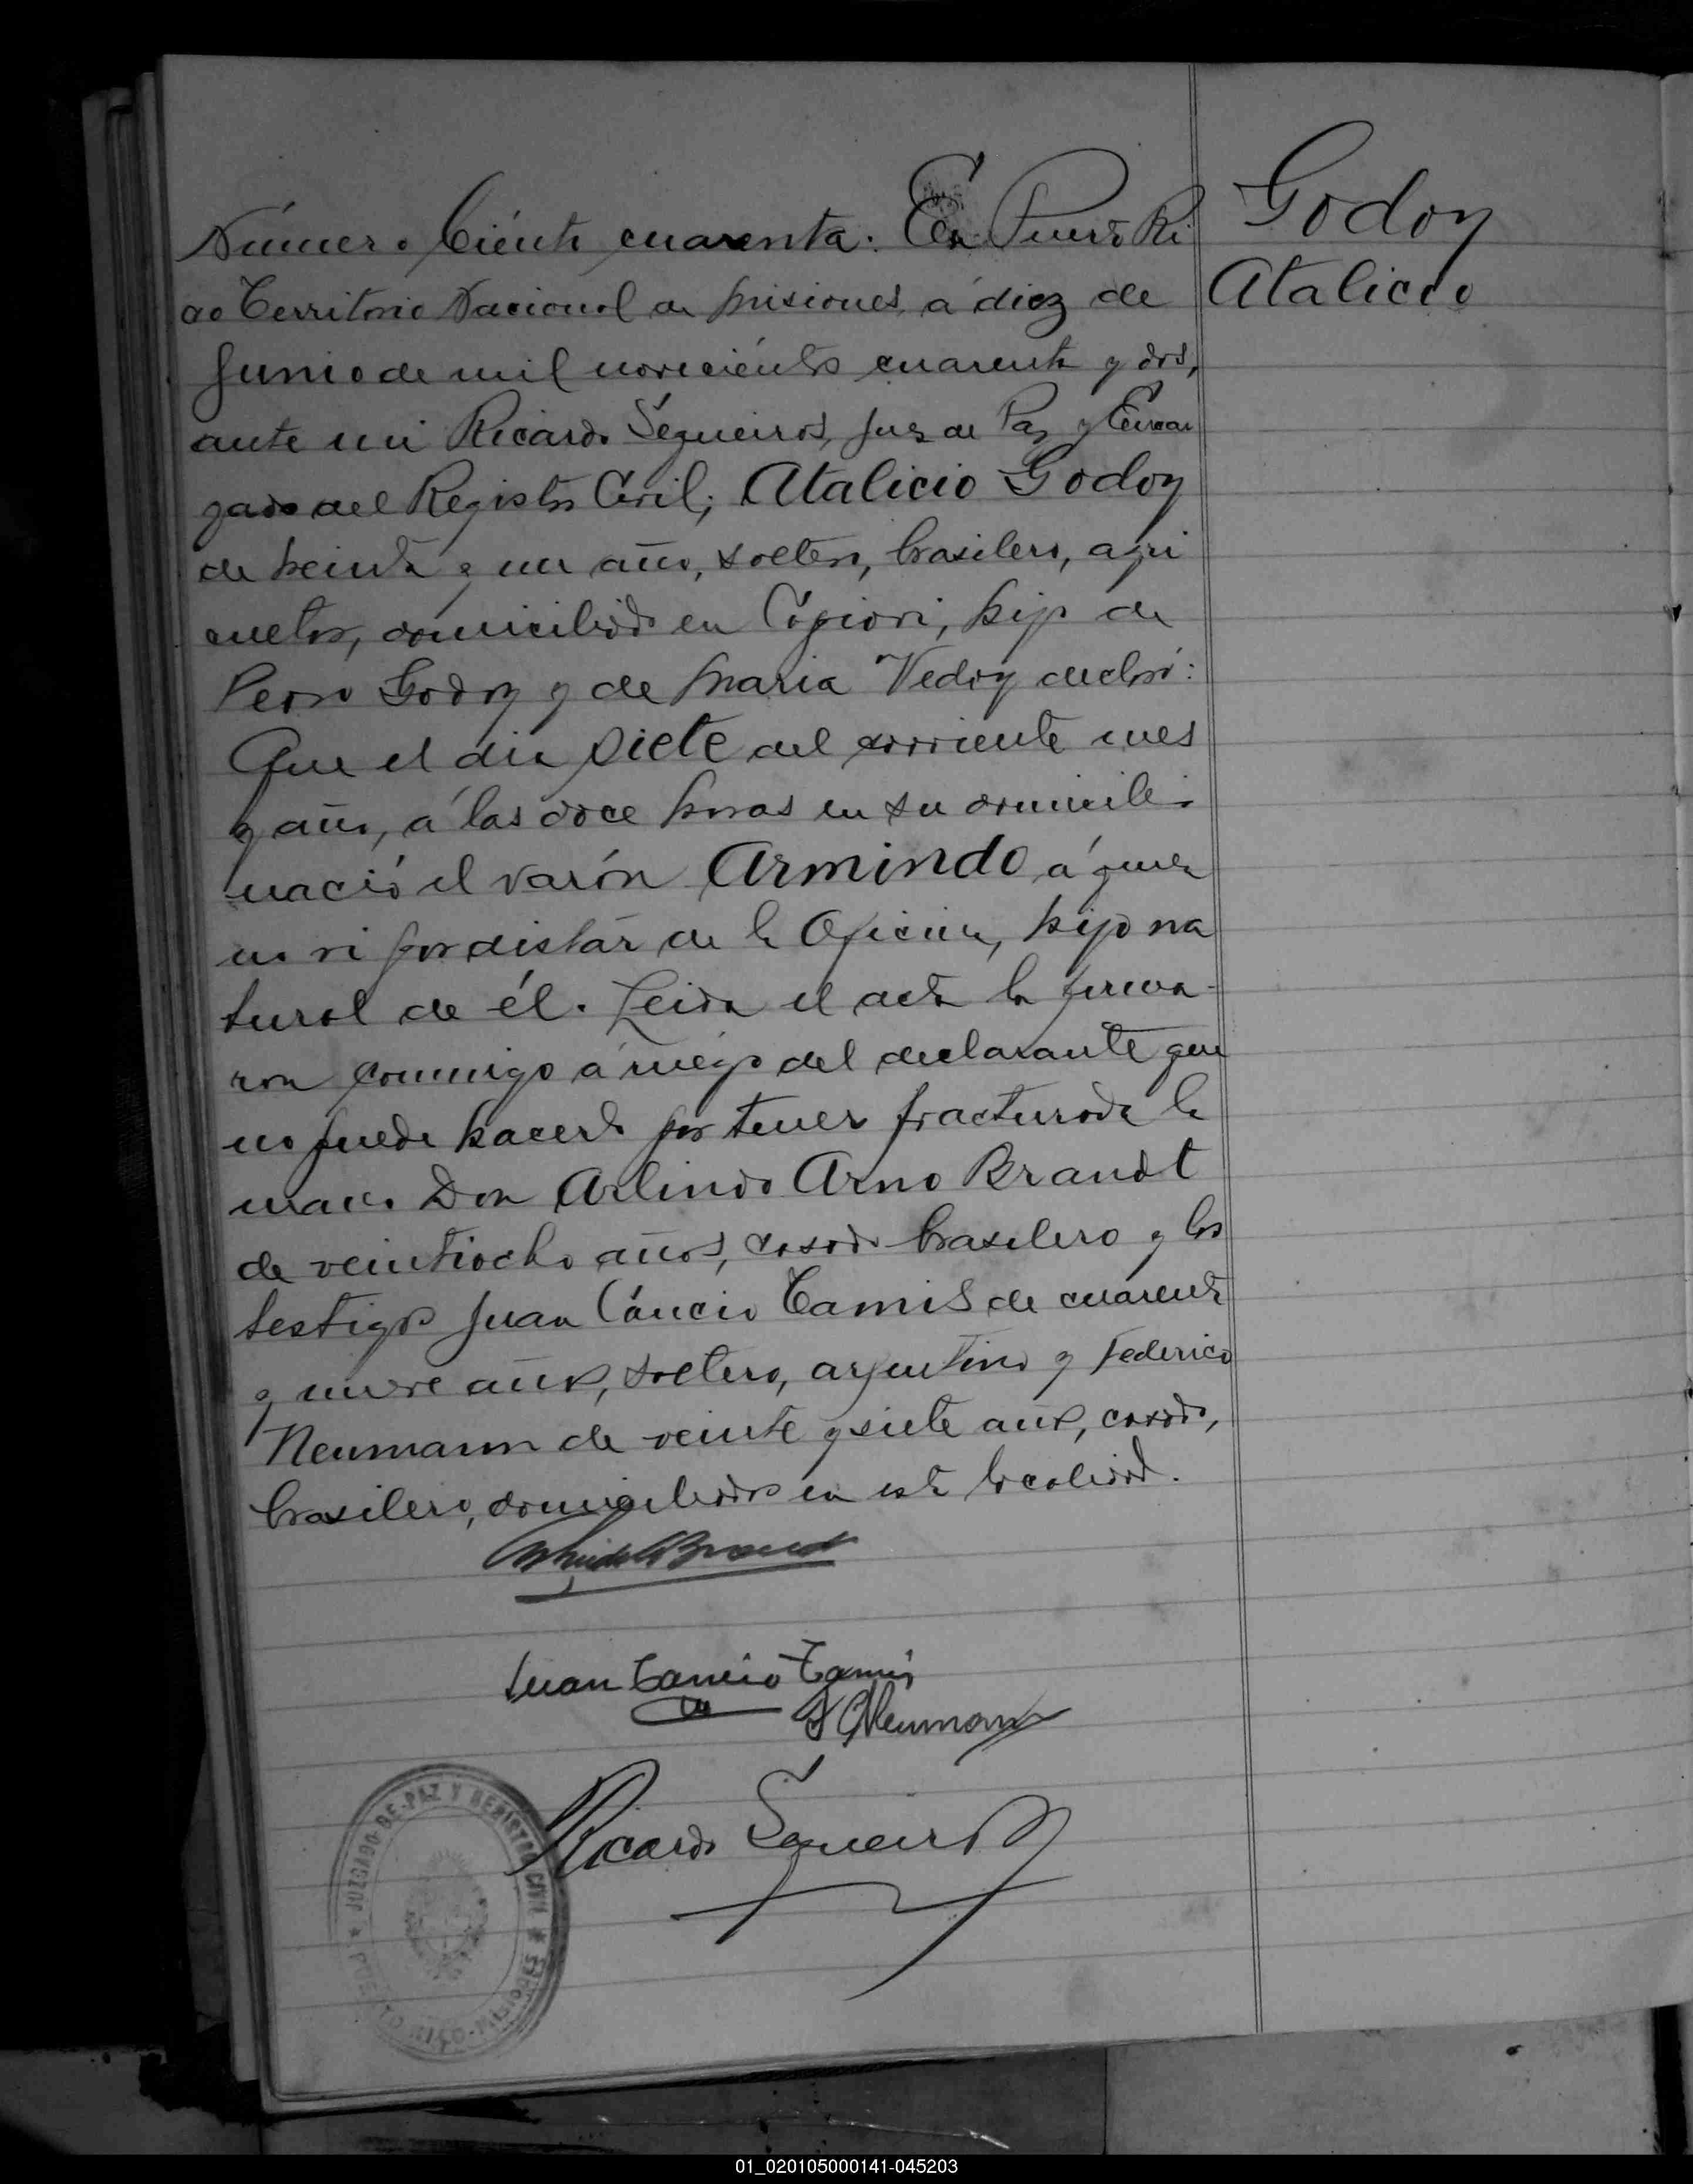 Número Ciento cuarenta. En Puerto Ri
co Territorio Nacional de Misiones, a diez de
Junio de mil novecientos cuarenta y dos,
ante mi Ricardo Sequeiros, Juez de Paz y Encar
gado del Registro Civil; Atalicio Godoy
de treinta y un año, soltero, brasilero, agri
cultor, domiciliado en, hijo de
Pedro Godoy y de Maria Vedoy declaró:
Que el dia siete del corriente mes
y año, á las doce horas en su domicilio
nació el varón Armindo á quien
no vi por distár de la Oficina, hijo na
tural de él. Leida el acta la firma-
ron conmigo á ruego del declarante que
no puede hacerlo por tener fracturada la
mano Don Arlindo Arno Brandt
de veintiocho años, casado brasilero y los
testigos Juan Cáncio Tamis de cuarenta
y nueve años, soltero, argentino y Federico
Neumann de veinte y siete años, casado,
brasilero, domiciliados en esta localidad.
Godoy
Atalicio
Juan Cancio Tamis
Neumann
Ricardo Sequeiros
JUZGADO DE PAZ Y REGISTRO CIVIL
PUERTO RICO - MISIONES
01_020105000141-045203